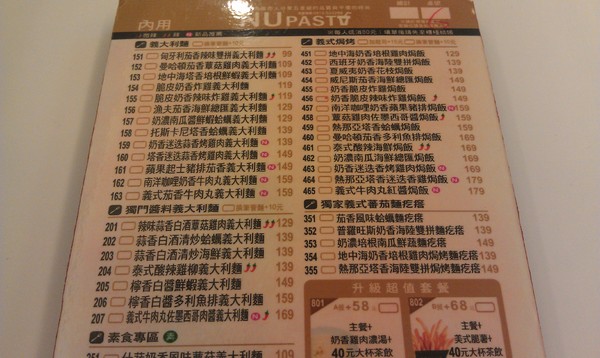 內用
NU PASTA
義大利麵
151 匈牙利茄香辣味雙拼義大利麵 99
152 曼哈頓茄香蘑菇雞肉義大利麵 109
153 地中海塔香培根鮮蝦義大利麵 109
154 脆皮奶香炸雞義大利麵 119
155 脆皮奶香辣味炸雞義大利麵 119
156 漁夫茄香海鮮總匯義大利麵 129
157 奶濃南瓜醬鮮蝦蛤蠣義大利麵 129
158 托斯卡尼塔香蛤蠣義大利麵 139
159 奶香迷迭蒜香烤雞義大利麵 N 149
160 塔香迷迭蒜香烤雞義大利麵 N 149
161 蘋果起士豬排茄香義大利麵 N 159
162 南洋咖哩奶香牛肉丸義大利麵 N 159
163 茄香義式牛肉丸義大利麵 N 169
獨門醬料義大利麵
201 辣味蒜香白酒蘑菇雞肉義大利麵 129
202 蒜香白酒清炒蛤蠣義大利麵 139
203 蒜香白酒清炒海鮮義大利麵 139
204 泰式酸辣雞柳義大利麵 139
205 檸香白醬雞肉義大利麵 149
206 檸香白醬多利魚排義大利麵 159
207 義式牛肉丸佐墨西哥肉醬義大利麵 N 169
素食專區
義式焗烤
451 地中海奶香培根雞肉焗飯 129
452 西班牙奶香海陸雙拼焗飯 129
453 夏威夷奶香花枝焗飯 139
454 威尼斯茄香海鮮總匯焗飯 139
455 奶香脆皮炸雞焗飯 149
456 奶香脆皮辣味炸雞焗飯 149
457 南洋咖哩奶香蘋果豬排焗飯 N 159
458 蘑菇雞肉佐墨西哥醬焗飯 159
459 熱那亞塔香蛤蠣焗飯 159
460 曼哈頓茄香多利魚排焗飯 169
461 泰式酸辣海鮮焗飯 169
462 奶濃南瓜海鮮總匯焗飯 169
463 奶香迷迭蒜香烤雞焗飯 N 169
464 熱那亞塔香迷迭香雞焗飯 N 179
465 義式牛肉丸紅醬焗飯 N 179
獨家義式蕃茄麵疙瘩
351 茄香風味蛤蠣麵疙瘩 139
352 普羅旺斯奶香海陸雙拼麵疙瘩 139
353 奶濃培根南瓜鮮蔬麵疙瘩 139
354 地中海奶香培根雞肉焗烤麵疙瘩 149
355 熱那亞塔香海陸雙拼焗烤麵疙瘩 149
升級超值套餐
801 A餐+58元
主餐+
奶香雞肉濃湯+
40元大杯茶飲
802 B餐+68元
主餐+
美式脆薯+
40元大杯茶飲